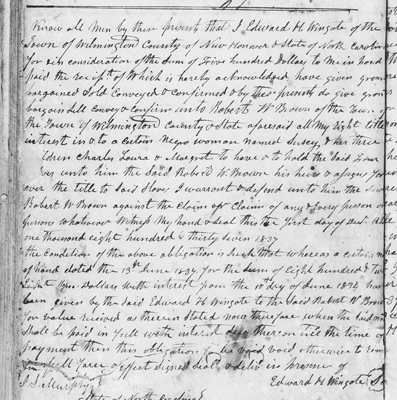 Know all Men by these present that I Edward H Wingate of the
Town of Wilmington County of New Hanover & State of North Carolina
for & in consideration of the Sum of Five hundred Dollars to Me in hand
paid the receipt of Which is hereby acknowledged have given gran
bargained Sold Conveyed & Confirmed & by these presents do give gran
bargain Sell Convey & Confirm unto Robert W Brown of the
the Town of Wilmington County & State aforesaid all My right title
interest in & to a certain Negro woman named & her three
ldren Charles Loura & Margret to have & to hold the Said
unto him the Said Robert W Brown his heirs & assigns for
ever the title to Said Slaves I warrant & defend unto him the Said
Robert W Brown against the Claim of Claims of any & every person or
persons whatsoever Witness My hand & seal this the first day of
one thousand eight hundred & thirty Seven 1837
the Condition of the above obligation is Such that whereas a certain
of hand dated the 13th June 1834 for the Sum of Eight hundred &
Eight Dollars with interest from the 10th day of June 1834 has
been given by the Said Edward H Wingate to the Said Robert W Brown
for value received as therein stated now therefore when the Said
Shall be paid in full with interest due thereon till the time of
payment then this obligation to be void otherwise to rem
in full force & effect Signed Seal'd & deliv'd in presence of
Murphy Edward H Wingate
State of North Carolina